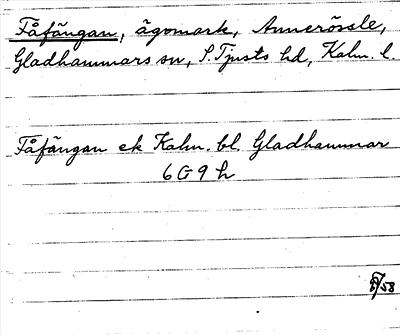 Fåfängan, ägomark, Annerössle,
Gladhammars sn, S. Tjusts hd, Kalm. l.
Fåfängan ek Kalm. bl. Gladhammar
6 G 9 h
/58